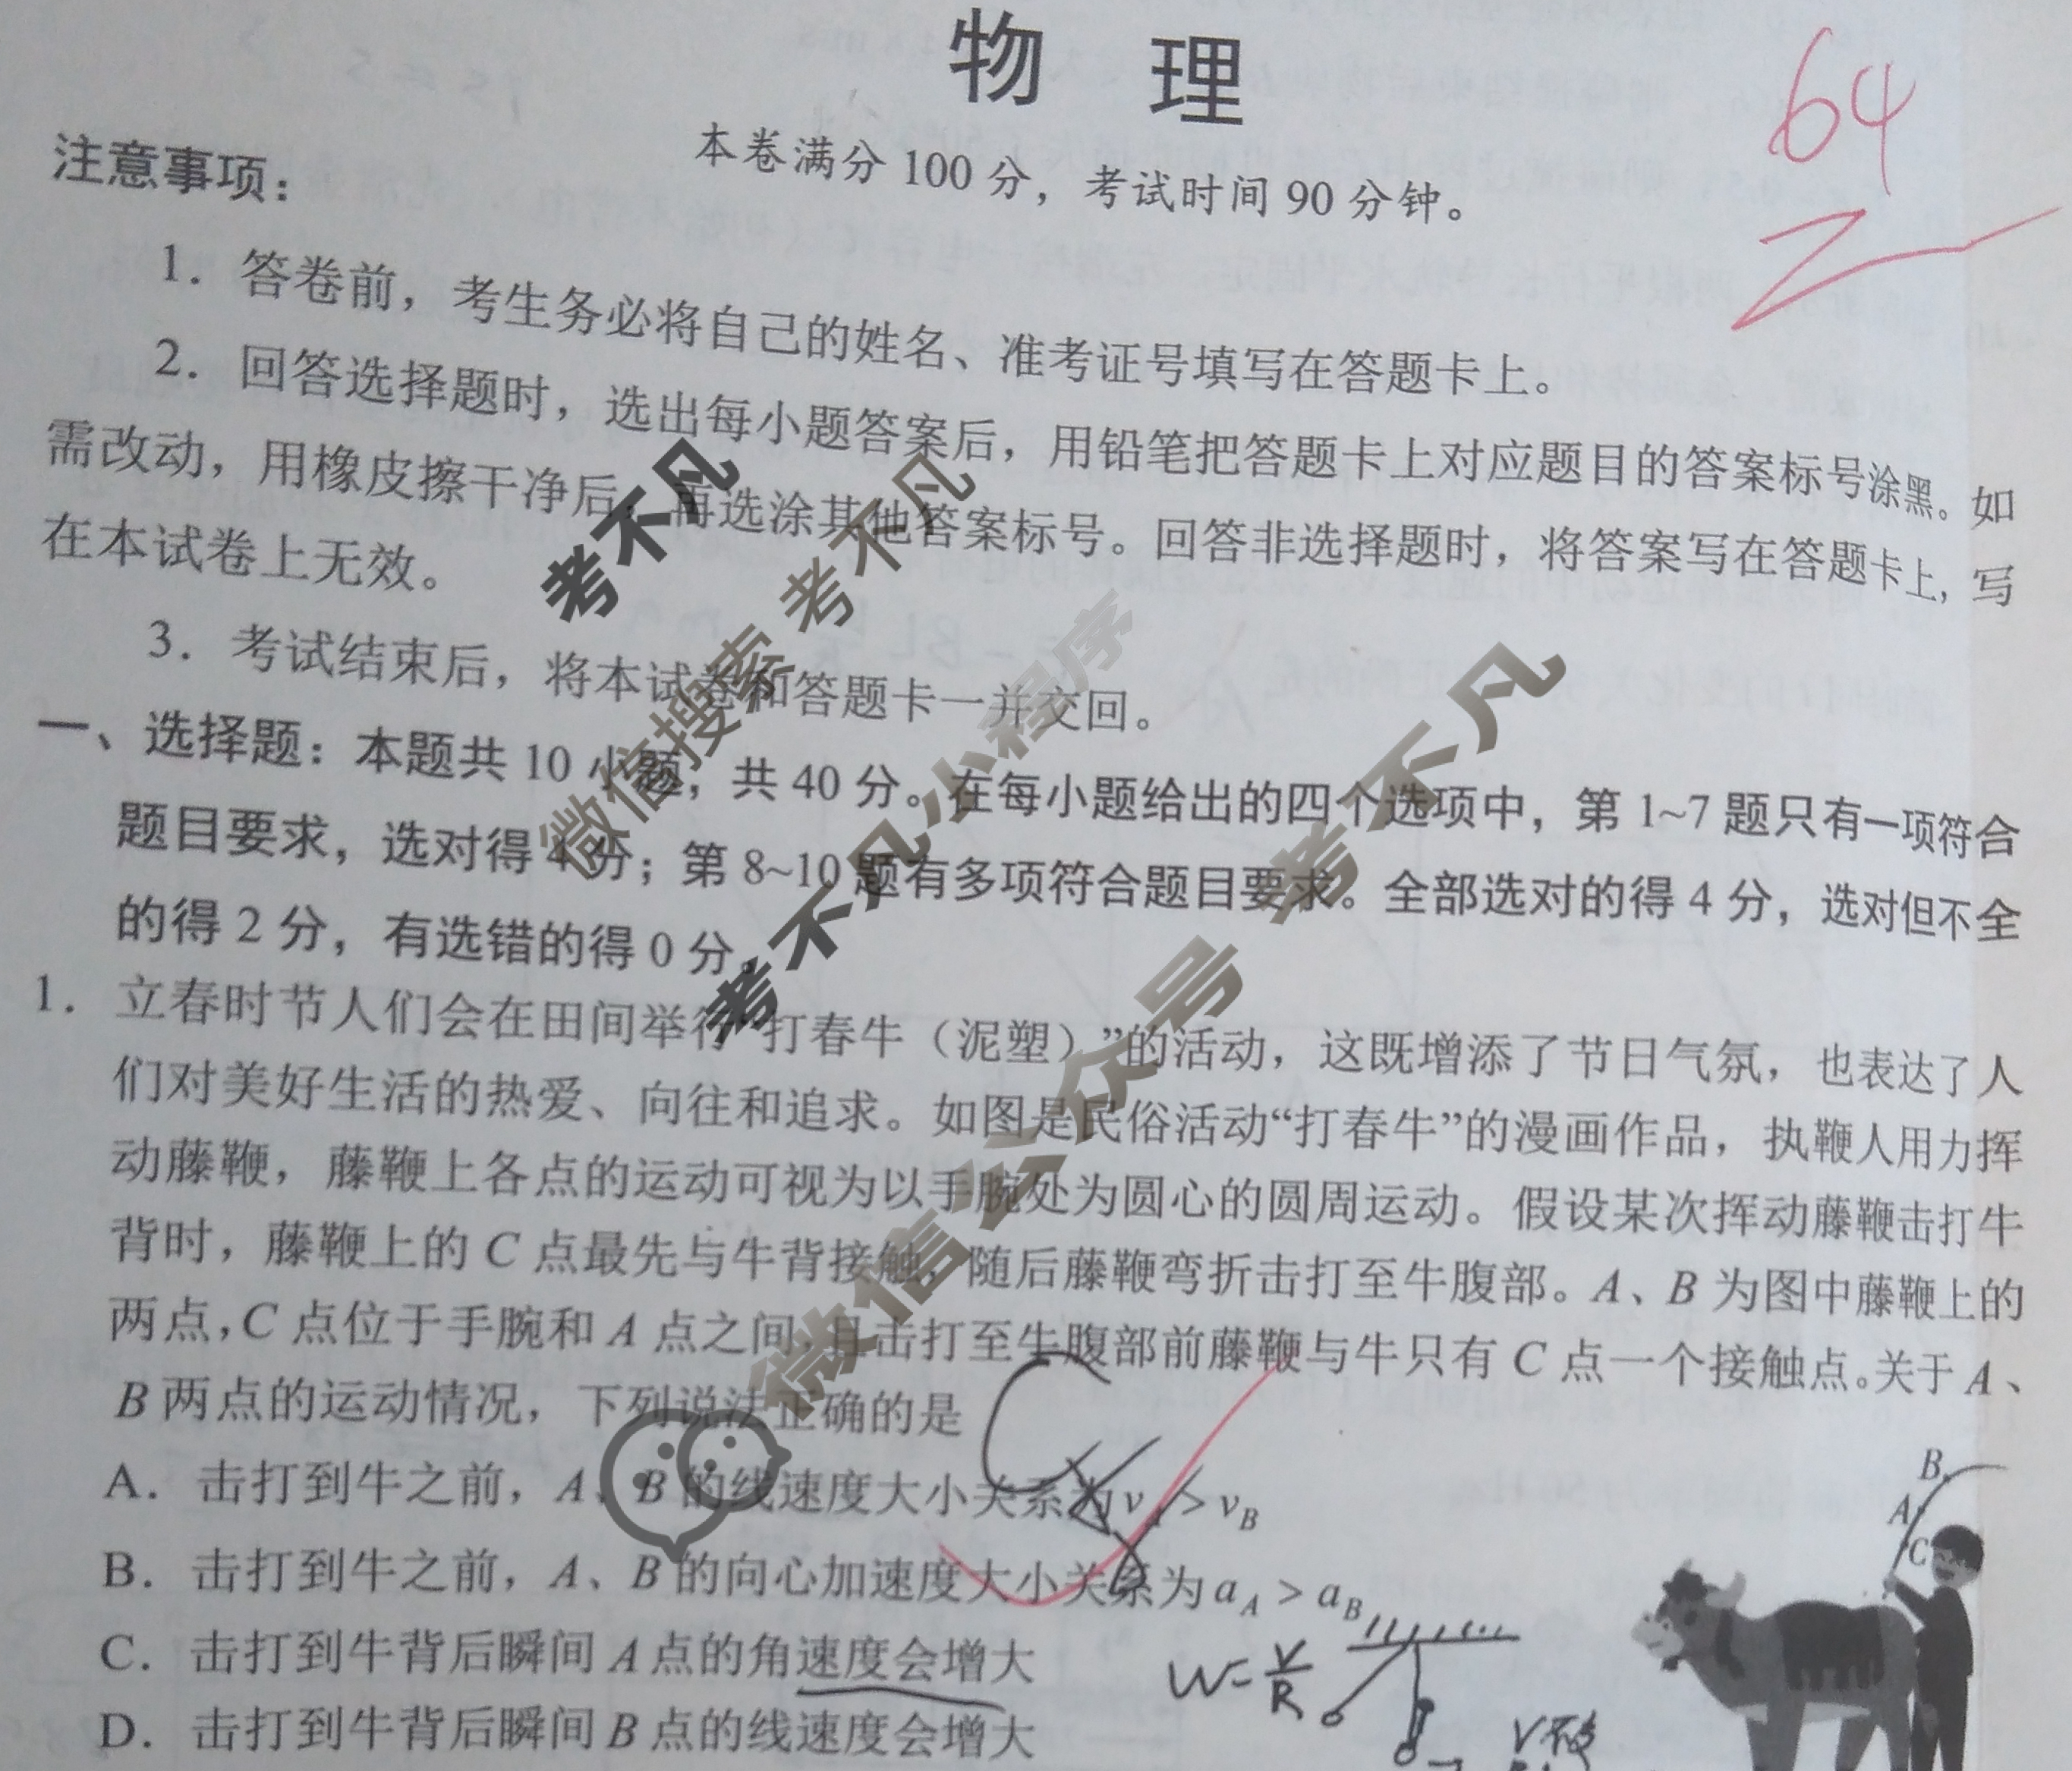 物 理
64
本卷满分 100 分，考试时间 90 分钟。
注意事项：
1．答卷前，考生务必将自己的姓名、准考证号填写在答题卡上。
2．回答选择题时，选出每小题答案后，用铅笔把答题卡上对应题目的答案标号涂黑。如
需改动，用橡皮擦干净后，再选涂其他答案标号。回答非选择题时，将答案写在答题卡上，写
在本试卷上无效。
3．考试结束后，将本试卷和答题卡一并交回。
一、选择题：本题共 10 小题，共 40 分。在每小题给出的四个选项中，第 1~7 题只有一项符合
题目要求，选对得 4 分；第 8~10 题有多项符合题目要求。全部选对的得 4 分，选对但不全
的得 2 分，有选错的得 0 分。
1．立春时节人们会在田间举行“打春牛（泥塑）”的活动，这既增添了节日气氛，也表达了人
们对美好生活的热爱、向往和追求。如图是民俗活动“打春牛”的漫画作品，执鞭人用力挥
动藤鞭，藤鞭上各点的运动可视为以手腕处为圆心的圆周运动。假设某次挥动藤鞭击打牛
背时，藤鞭上的 C 点最先与牛背接触，随后藤鞭弯折击打至牛腹部。A、B 为图中藤鞭上的
两点，C 点位于手腕和 A 点之间，且击打至牛腹部前藤鞭与牛只有 C 点一个接触点。关于 A、
B 两点的运动情况，下列说法正确的是
C
A．击打到牛之前，A、B 的线速度大小关系为 vA > vB
B．击打到牛之前，A、B 的向心加速度大小关系为 aA > aB
C．击打到牛背后瞬间 A 点的角速度会增大
D．击打到牛背后瞬间 B 点的线速度会增大
B
A
C
W=V/R
V不变
考不凡
微信搜索 考不凡
考不凡小程序
微信公众号 考不凡